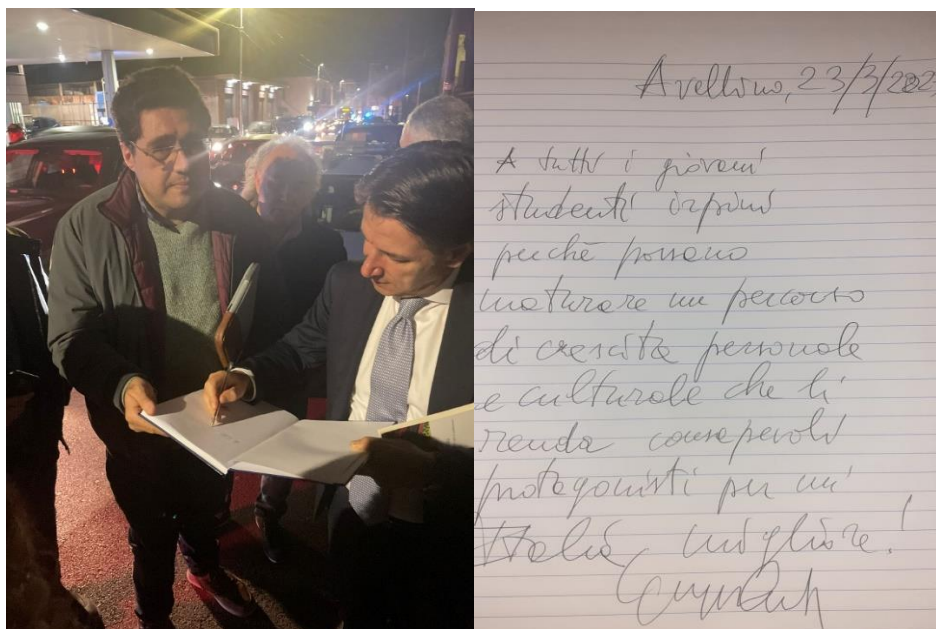 Avellino, 23/3/202
A tutti i giovani
studenti irpini
perché possano
maturare un percorso
di crescita personale
e culturale che li
renda consapevoli
protagonisti per un'
Italia migliore!